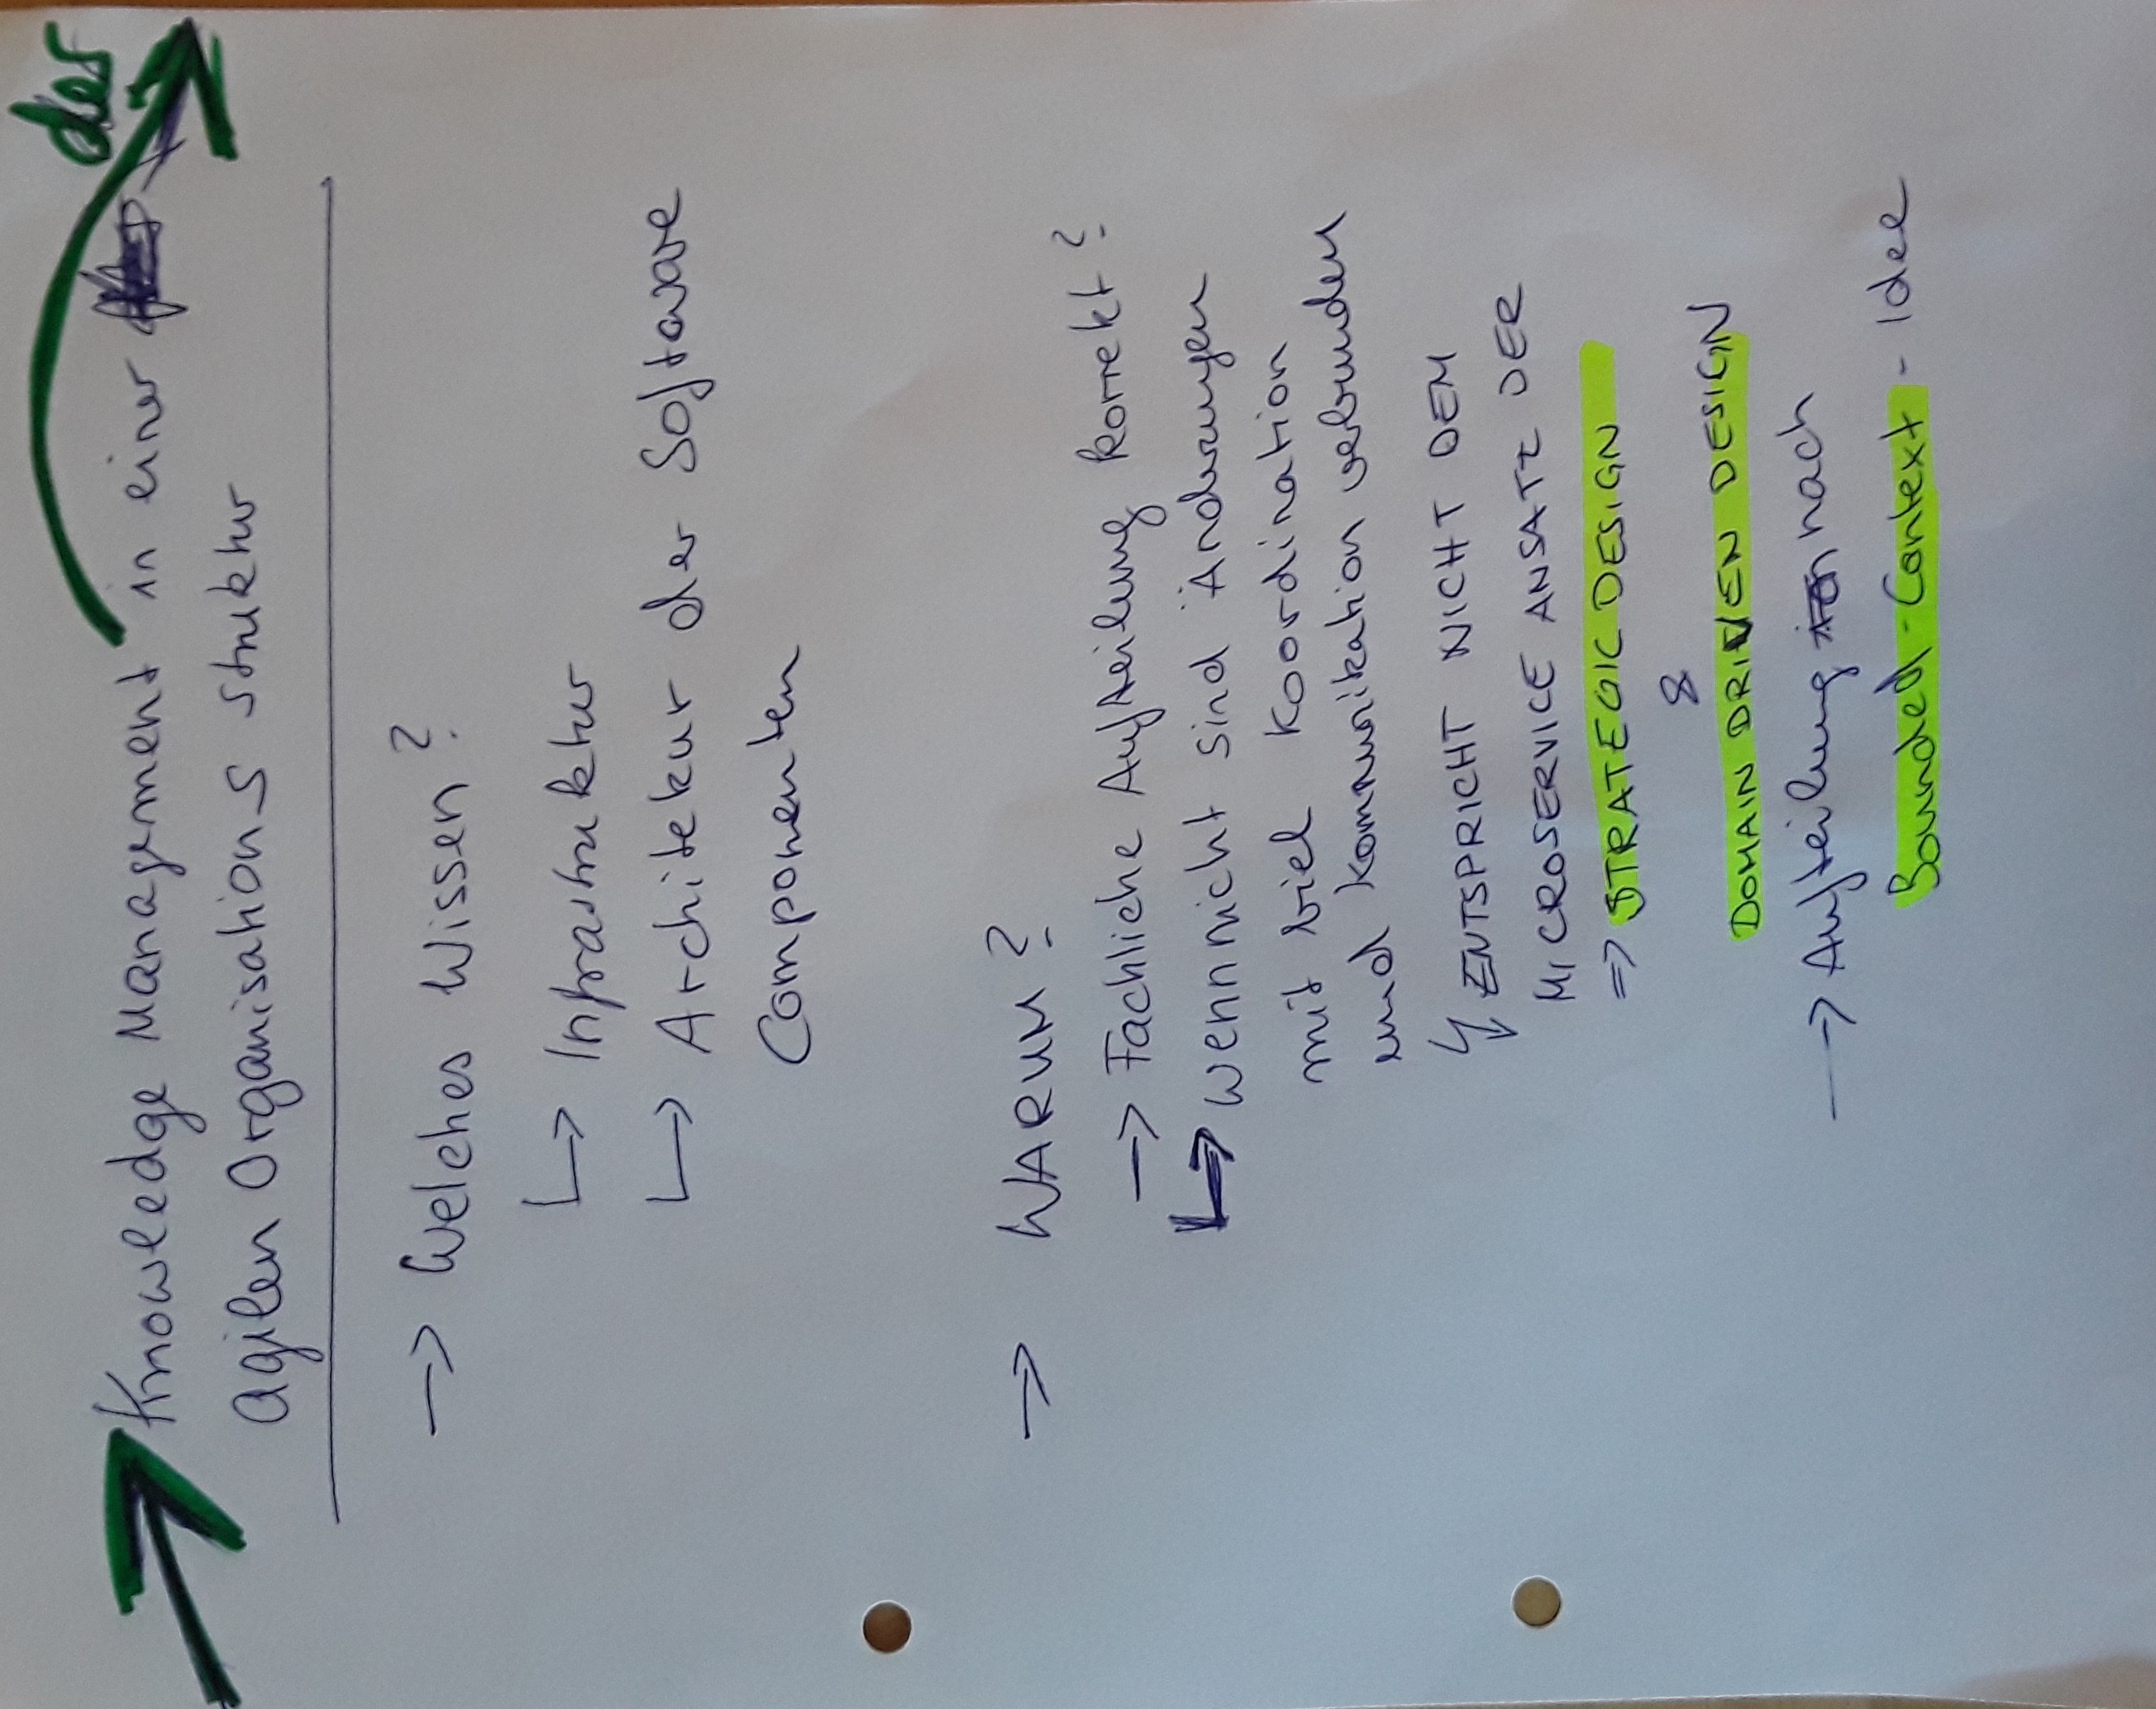 der
Knowledge Management in einer
agilen Organisations struktur
→ Welches Wissen?
↳ Infrastruktur
↳ Architekur der Software
Componenten
→ WARUM?
→ Fachliche Aufteilung korrekt?
↳ wenn nicht sind Änderungen
mit viel Koordination
und Kommunikation verbunden
ENTSPRICHT NICHT DEM
MICROSERVICE ANSATZ DER
⇒ STRATEGIC DESIGN
&
DOMAIN DRIVEN DESIGN
→ Aufteilung nach
Bounded-Context - Idee